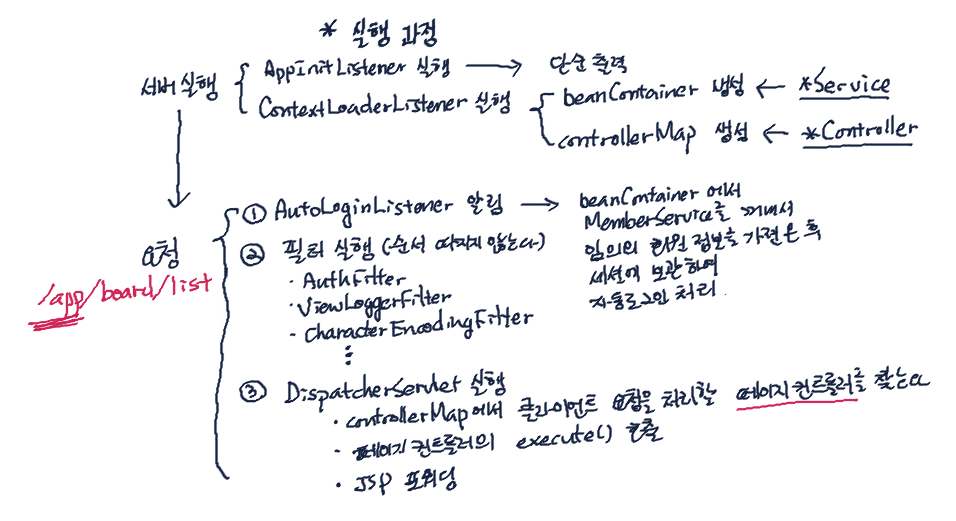 * 실행 과정
서버실행
AppInitListener 실행 → 단순 출력
ContextLoaderListener 실행
beanContainer 생성 ← *Service
controllerMap 생성 ← *Controller
요청
/app/board/list
① AutoLoginListener 알림 → beanContainer 에서
MemberService를 꺼내서
임의의 회원 정보를 가져온 후
세션에 보관하여
자동로그인 처리.
② 필터 실행 (순서 따지지 않는다)
· AuthFilter
· ViewLoggerFilter
· CharacterEncodingFilter
⋮
③ DispatcherServlet 실행
· controllerMap에서 클라이언트 요청을 처리할 페이지 컨트롤러를 찾는다
· 페이지 컨트롤러의 execute() 호출
· JSP 포워딩